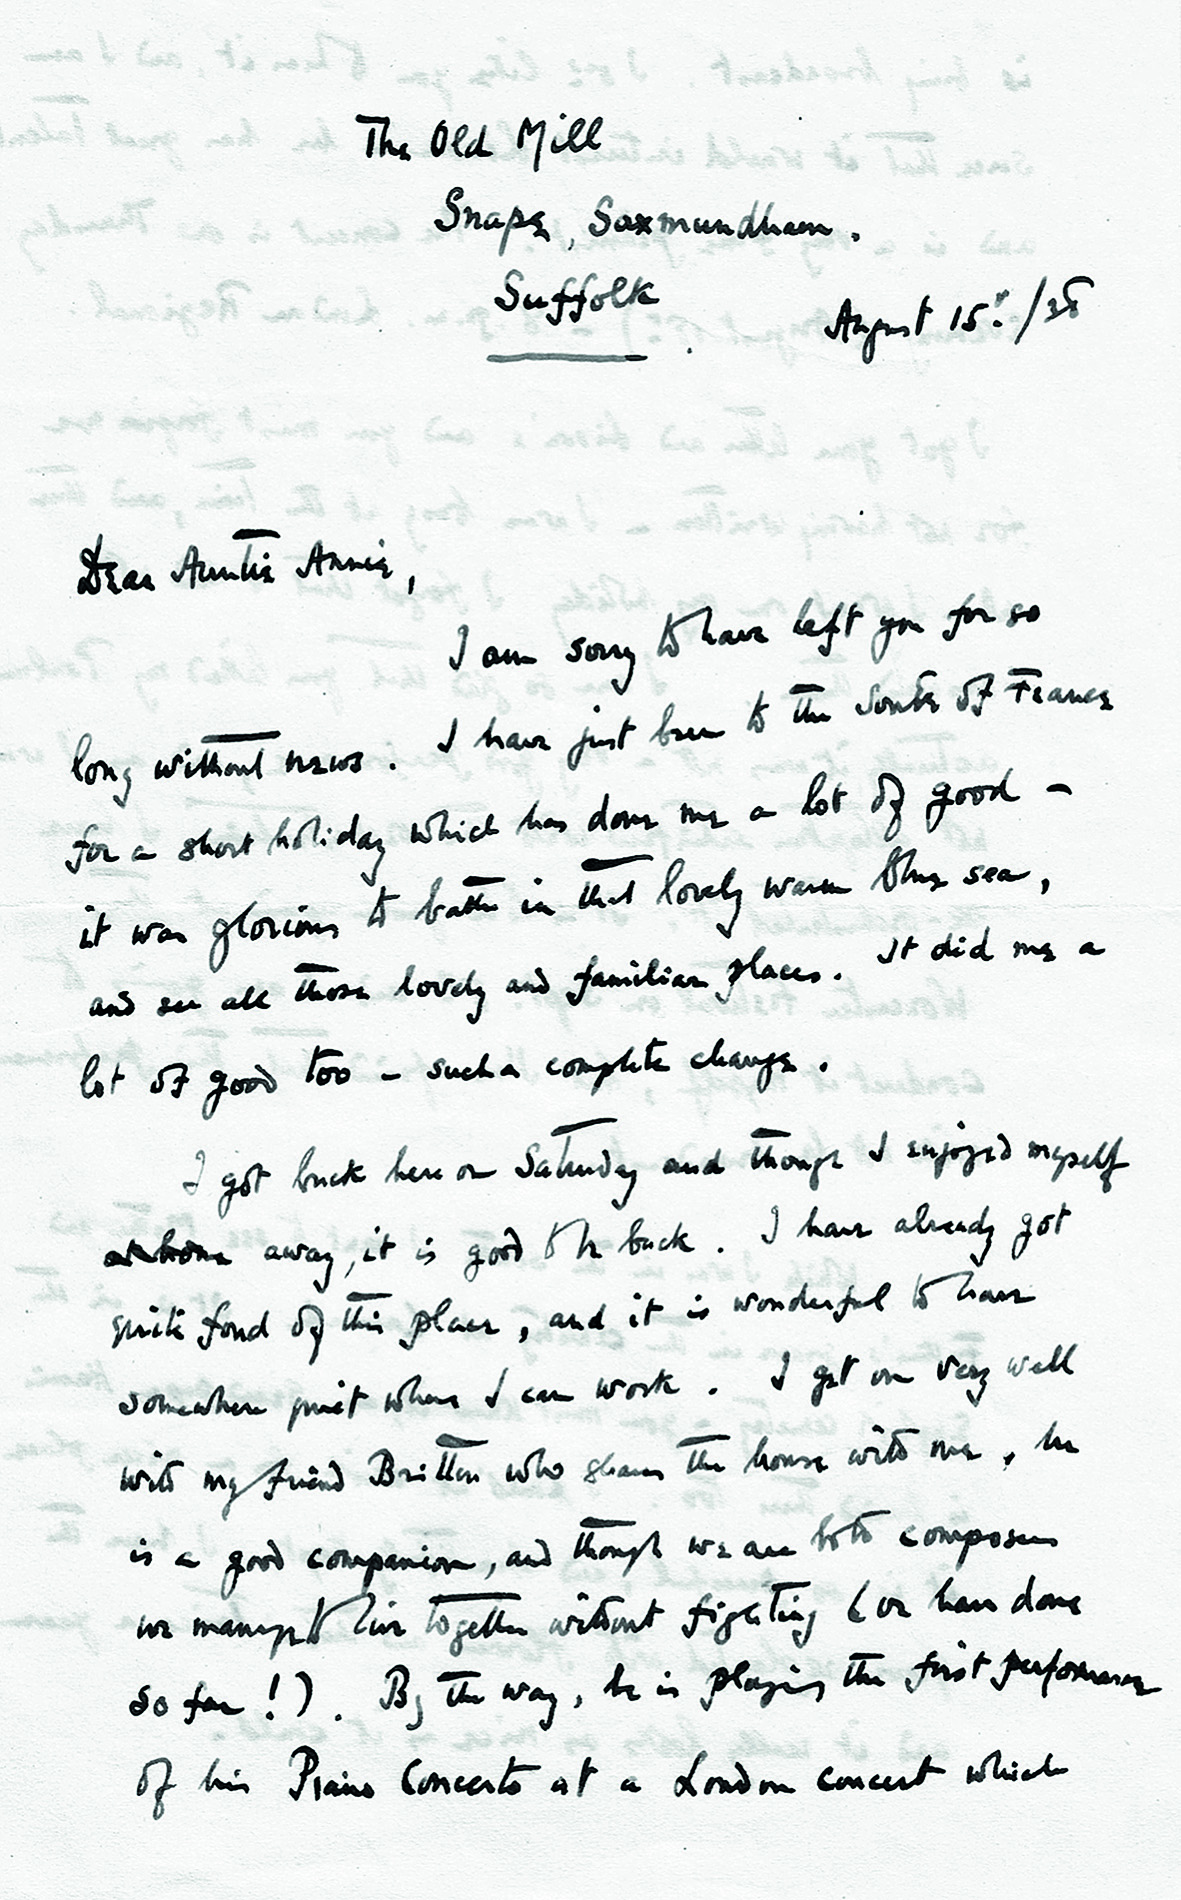 The Old Mill
Snape, Saxmundham.
Suffolk
August 15th/38
Dear Auntie Annie,
I am sorry to have left you for so
long without news. I have just been to the South of France
for a short holiday which has done me a lot of good –
it was glorious to bathe in that lovely warm blue sea,
and see all those lovely and familiar places. It did me a
lot of good too – such a complete change.
I got back here on Saturday and though I enjoyed myself
away, it is good to be back. I have already got
quite fond of this place, and it is wonderful to have
somewhere quiet where I can work. I get on very well
with my friend Britten who shares the house with me, he
is a good companion, and though we are both composers
we manage to live together without fighting (or have done
so far!). By the way, he is playing the first performance
of his Piano Concerto at a London concert which